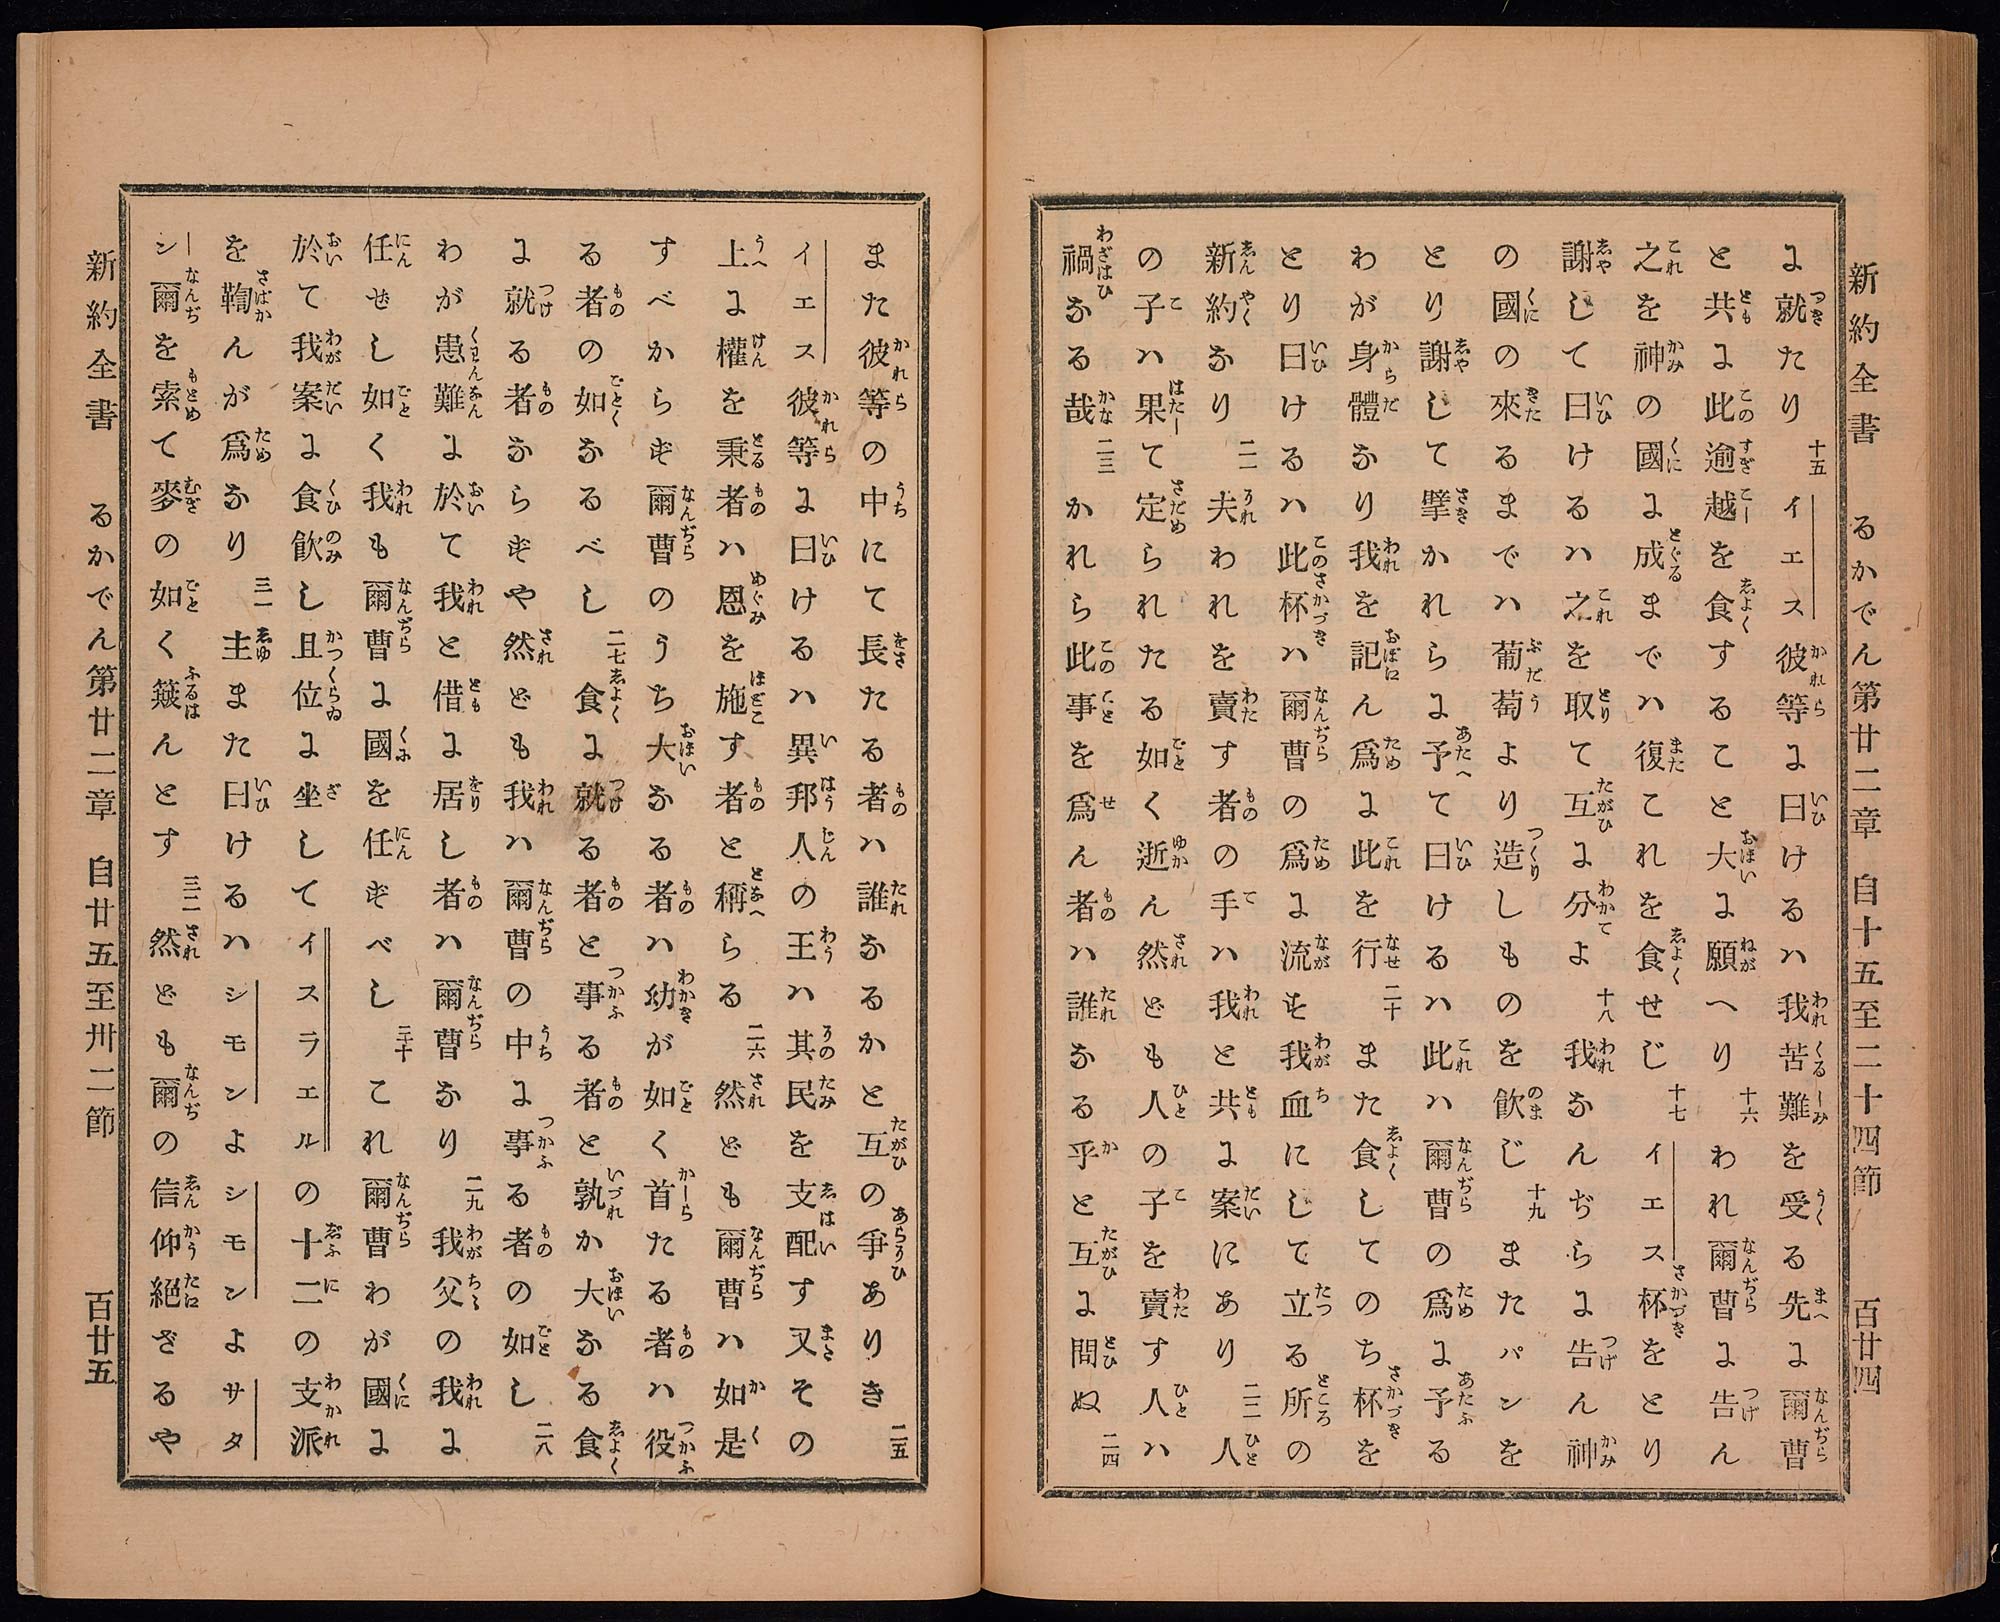 新約全書 るかでん第廿二章 自十五至二十四節 百廿四
に就たり 十五 イエス彼等に曰けるハ我苦難を受る先に爾曹
と共に此逾越を食することを大に願へり 十六 われ爾曹に告ん
之を神の國に成までハ復これを食せじ 十七 イエス杯をとり
謝して曰けるハ之を取て互に分てよ 十八 我なんぢらに告ん神
の國の來るまでハ葡萄より造しものを飮じ 十九 またパンを
とり謝して擘かれらに予て曰けるハ此ハ爾曹の爲に予る
わが身體なり我を記ん爲に此を行せ 二十 また食してのち杯を
とり曰けるハ此杯ハ爾曹の爲に流す我血にして立る所の
新約なり 二一 夫われを賣す者の手ハ我と共に案にあり 二二 人
の子ハ果て定られたる如く逝ん然ども人の子を賣す人ハ
禍なる哉 二三 かれら此事を爲ん者ハ誰なる乎と互に問ぬ 二四
また彼等の中にて長たる者ハ誰なるかと互の爭ありき 二五
イエス彼等に曰けるハ異邦人の王ハ其民を支配す又その
上に權を秉者ハ恩を施す者と稱らる 二六 然ども爾曹ハ如是
すべからず爾曹のうち大なる者ハ幼が如く首たる者ハ役
る者の如なるべし 二七 食に就る者と事る者と孰か大なる食
に就る者ならずや然ども我ハ爾曹の中に事る者の如し 二八
わが患難に於て我と偕に居し者ハ爾曹なり 二九 我父の我に
任せし如く我も爾曹に國を任ずべし 三十 これ爾曹わが國に
於て我案に食飮し且位に坐してイスラエルの十二の支派
を鞫んが爲なり 三一 主また曰けるハシモンよシモンよサタ
ン爾を索て麥の如く簸んとす 三二 然ども爾の信仰絕ざるや
新約全書 るかでん第廿二章 自廿五至卅二節 百廿五